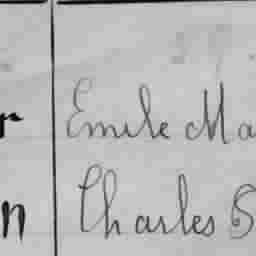 r Emile Ma
n Charles B